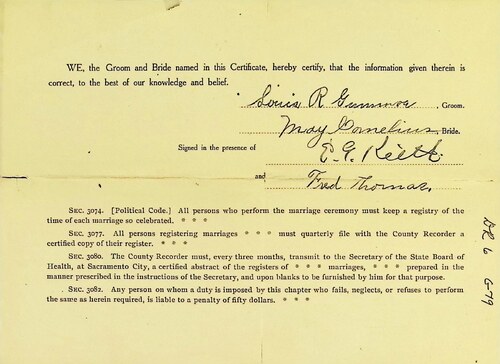 WE, the Groom and Bride named in this Certificate, hereby certify, that the information given therein is
correct, to the best of our knowledge and belief.
Louis R , Groom.
May Cornelius, Bride.
Signed in the presence of E. G. Keith
and Fred Thomas.
SEC. 3074. [Political Code.] All persons who perform the marriage ceremony must keep a registry of the
time of each marriage so celebrated. * * *
SEC. 3077. All persons registering marriages * * * must quarterly file with the County Recorder a
certified copy of their register. * * *
SEC. 3080. The County Recorder must, every three months, transmit to the Secretary of the State Board of
Health, at Sacramento City, a certified abstract of the registers of * * * marriages, * * * prepared in the
manner prescribed in the instructions of the Secretary, and upon blanks to be furnished by him for that purpose.
SEC. 3082. Any person on whom a duty is imposed by this chapter who fails, neglects, or refuses to perform
the same as herein required, is liable to a penalty of fifty dollars. * * *
DR 6 G-79